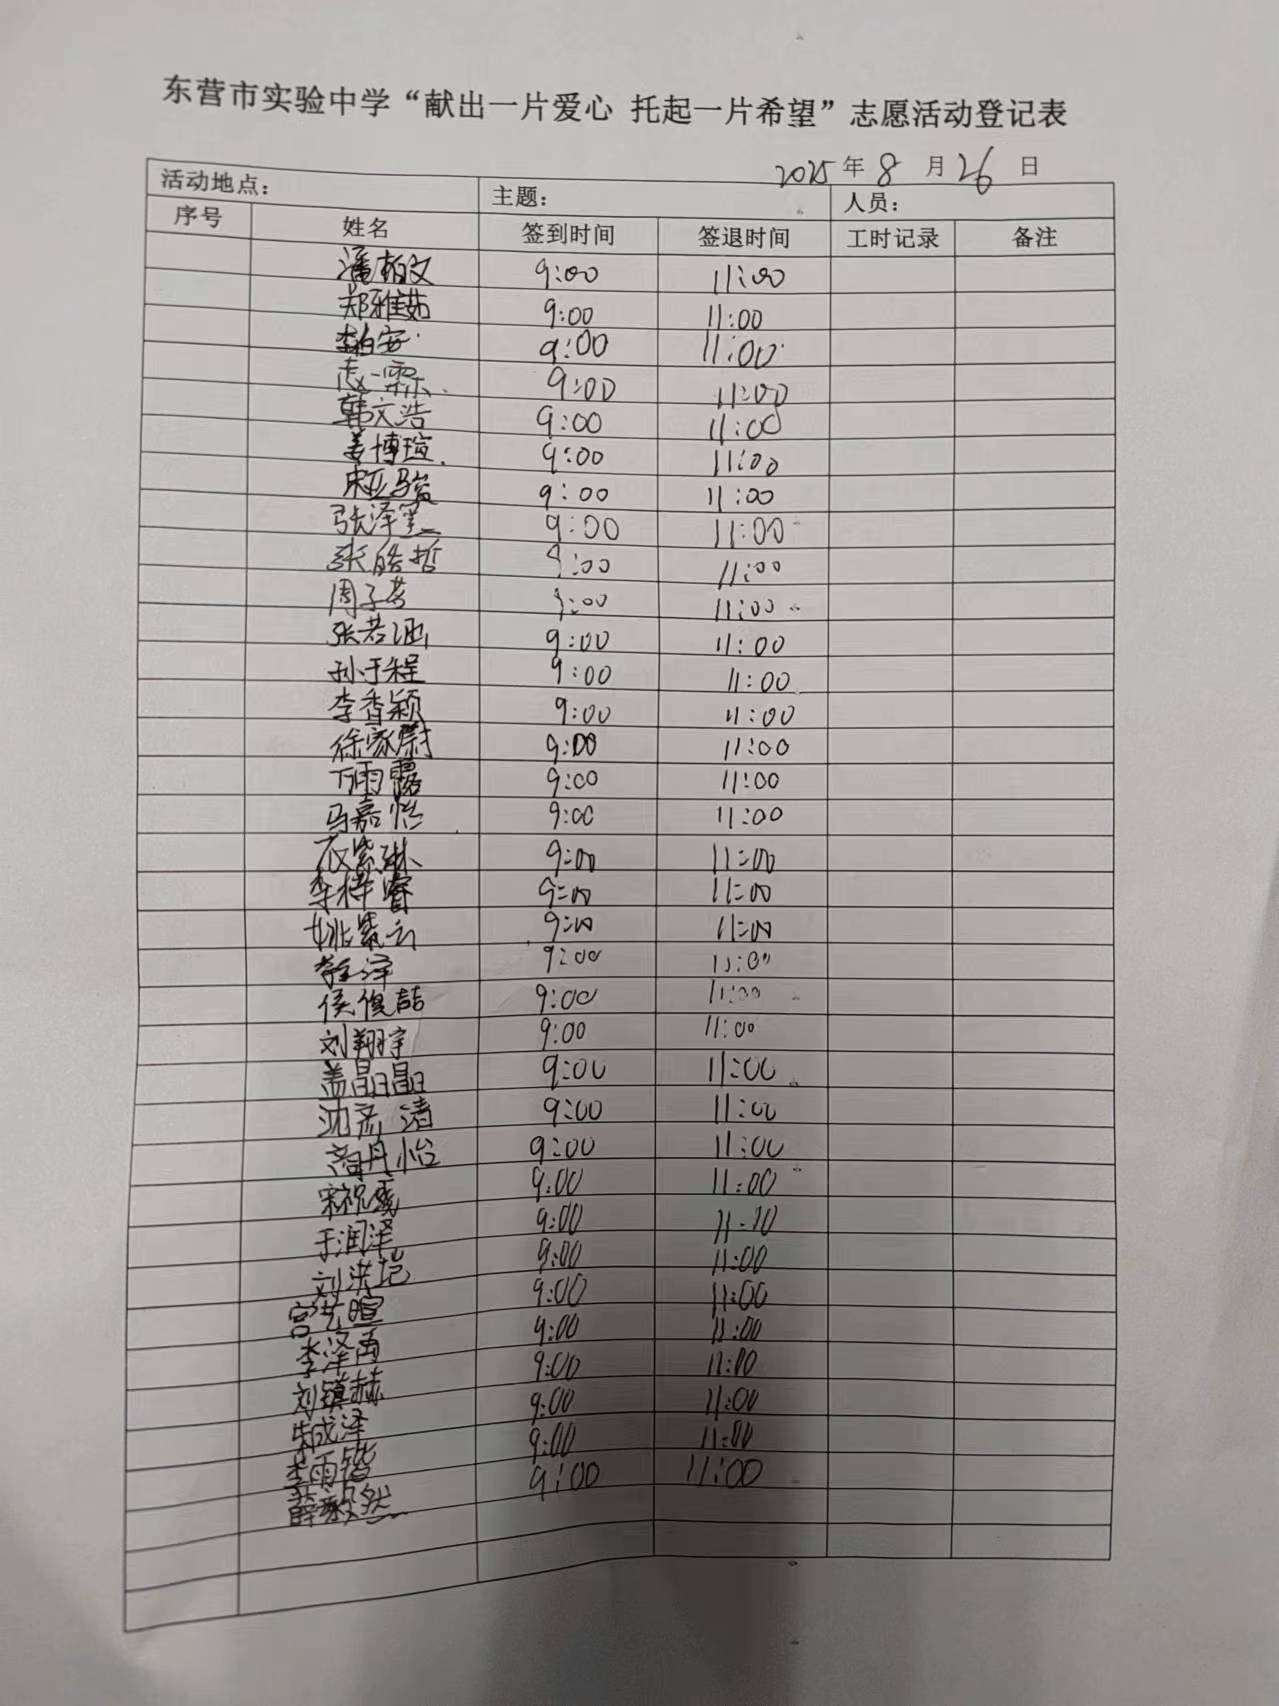 东营市实验中学“献出一片爱心 托起一片希望”志愿活动登记表
2025年8月26日
活动地点： 主题： 人员：
序号 姓名 签到时间 签退时间 工时记录 备注
潘柏文 9:00 11:00
郑雅茹 9:00 11:00
李柏安 9:00 11:00
9:00 11:00
韩文浩 9:00 11:00
姜博瑄 9:00 11:00
宋亚骏 9:00 11:00
张泽 9:00 11:00
张皓哲 9:00 11:00
周子 9:00 11:00
张若涵 9:00 11:00
孙于程 9:00 11:00
李香颖 9:00 11:00
徐家蔚 9:00 11:00
万雨露 9:00 11:00
马嘉怡 9:00 11:00
衣紫琳 9:00 11:00
李梓睿 9:00 11:00
姚紫云 9:00 11:00
9:00 11:00
侯俊喆 9:00 11:00
刘翔宇 9:00 11:00
盖晶晶 9:00 11:00
沈彦清 9:00 11:00
商丹怡 9:00 11:00
宋祝 9:00 11:00
于润泽 9:00 11:10
刘洪垲 9:00 11:00
宫艺暄 9:00 11:00
李泽禹 9:00 11:00
刘镇赫 9:00 11:00
朱成泽 9:00 11:00
李雨锴 9:00 11:00
薛毅然 9:00 11:00